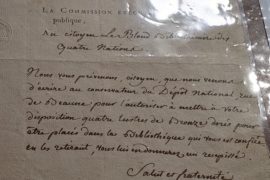 La Commission exéc
publique,
Au citoyen Le Blond Bibliothécaire des
Quatre Nations
Nous vous prévenons, citoyen, que nous venons
d'écrire au conservateur du Dépôt national, rue
de Beaune pour l'autoriser à mettre à votre
disposition quatre lustres de Bronze dorés pour
être placés dans la Bibliothèque qui vous est confiée
en les retirant, vous lui en donnerez un récépissé.
Salut et fraternité